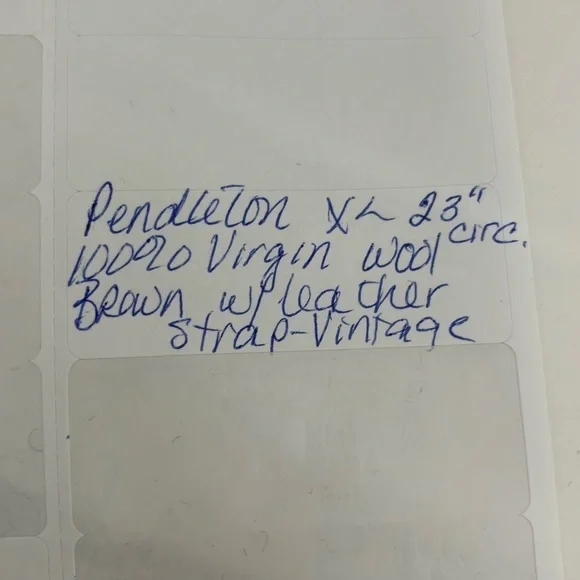 Pendleton XL 23" circ.
100% Virgin Wool
Brown w/ leather
Strap-Vintage